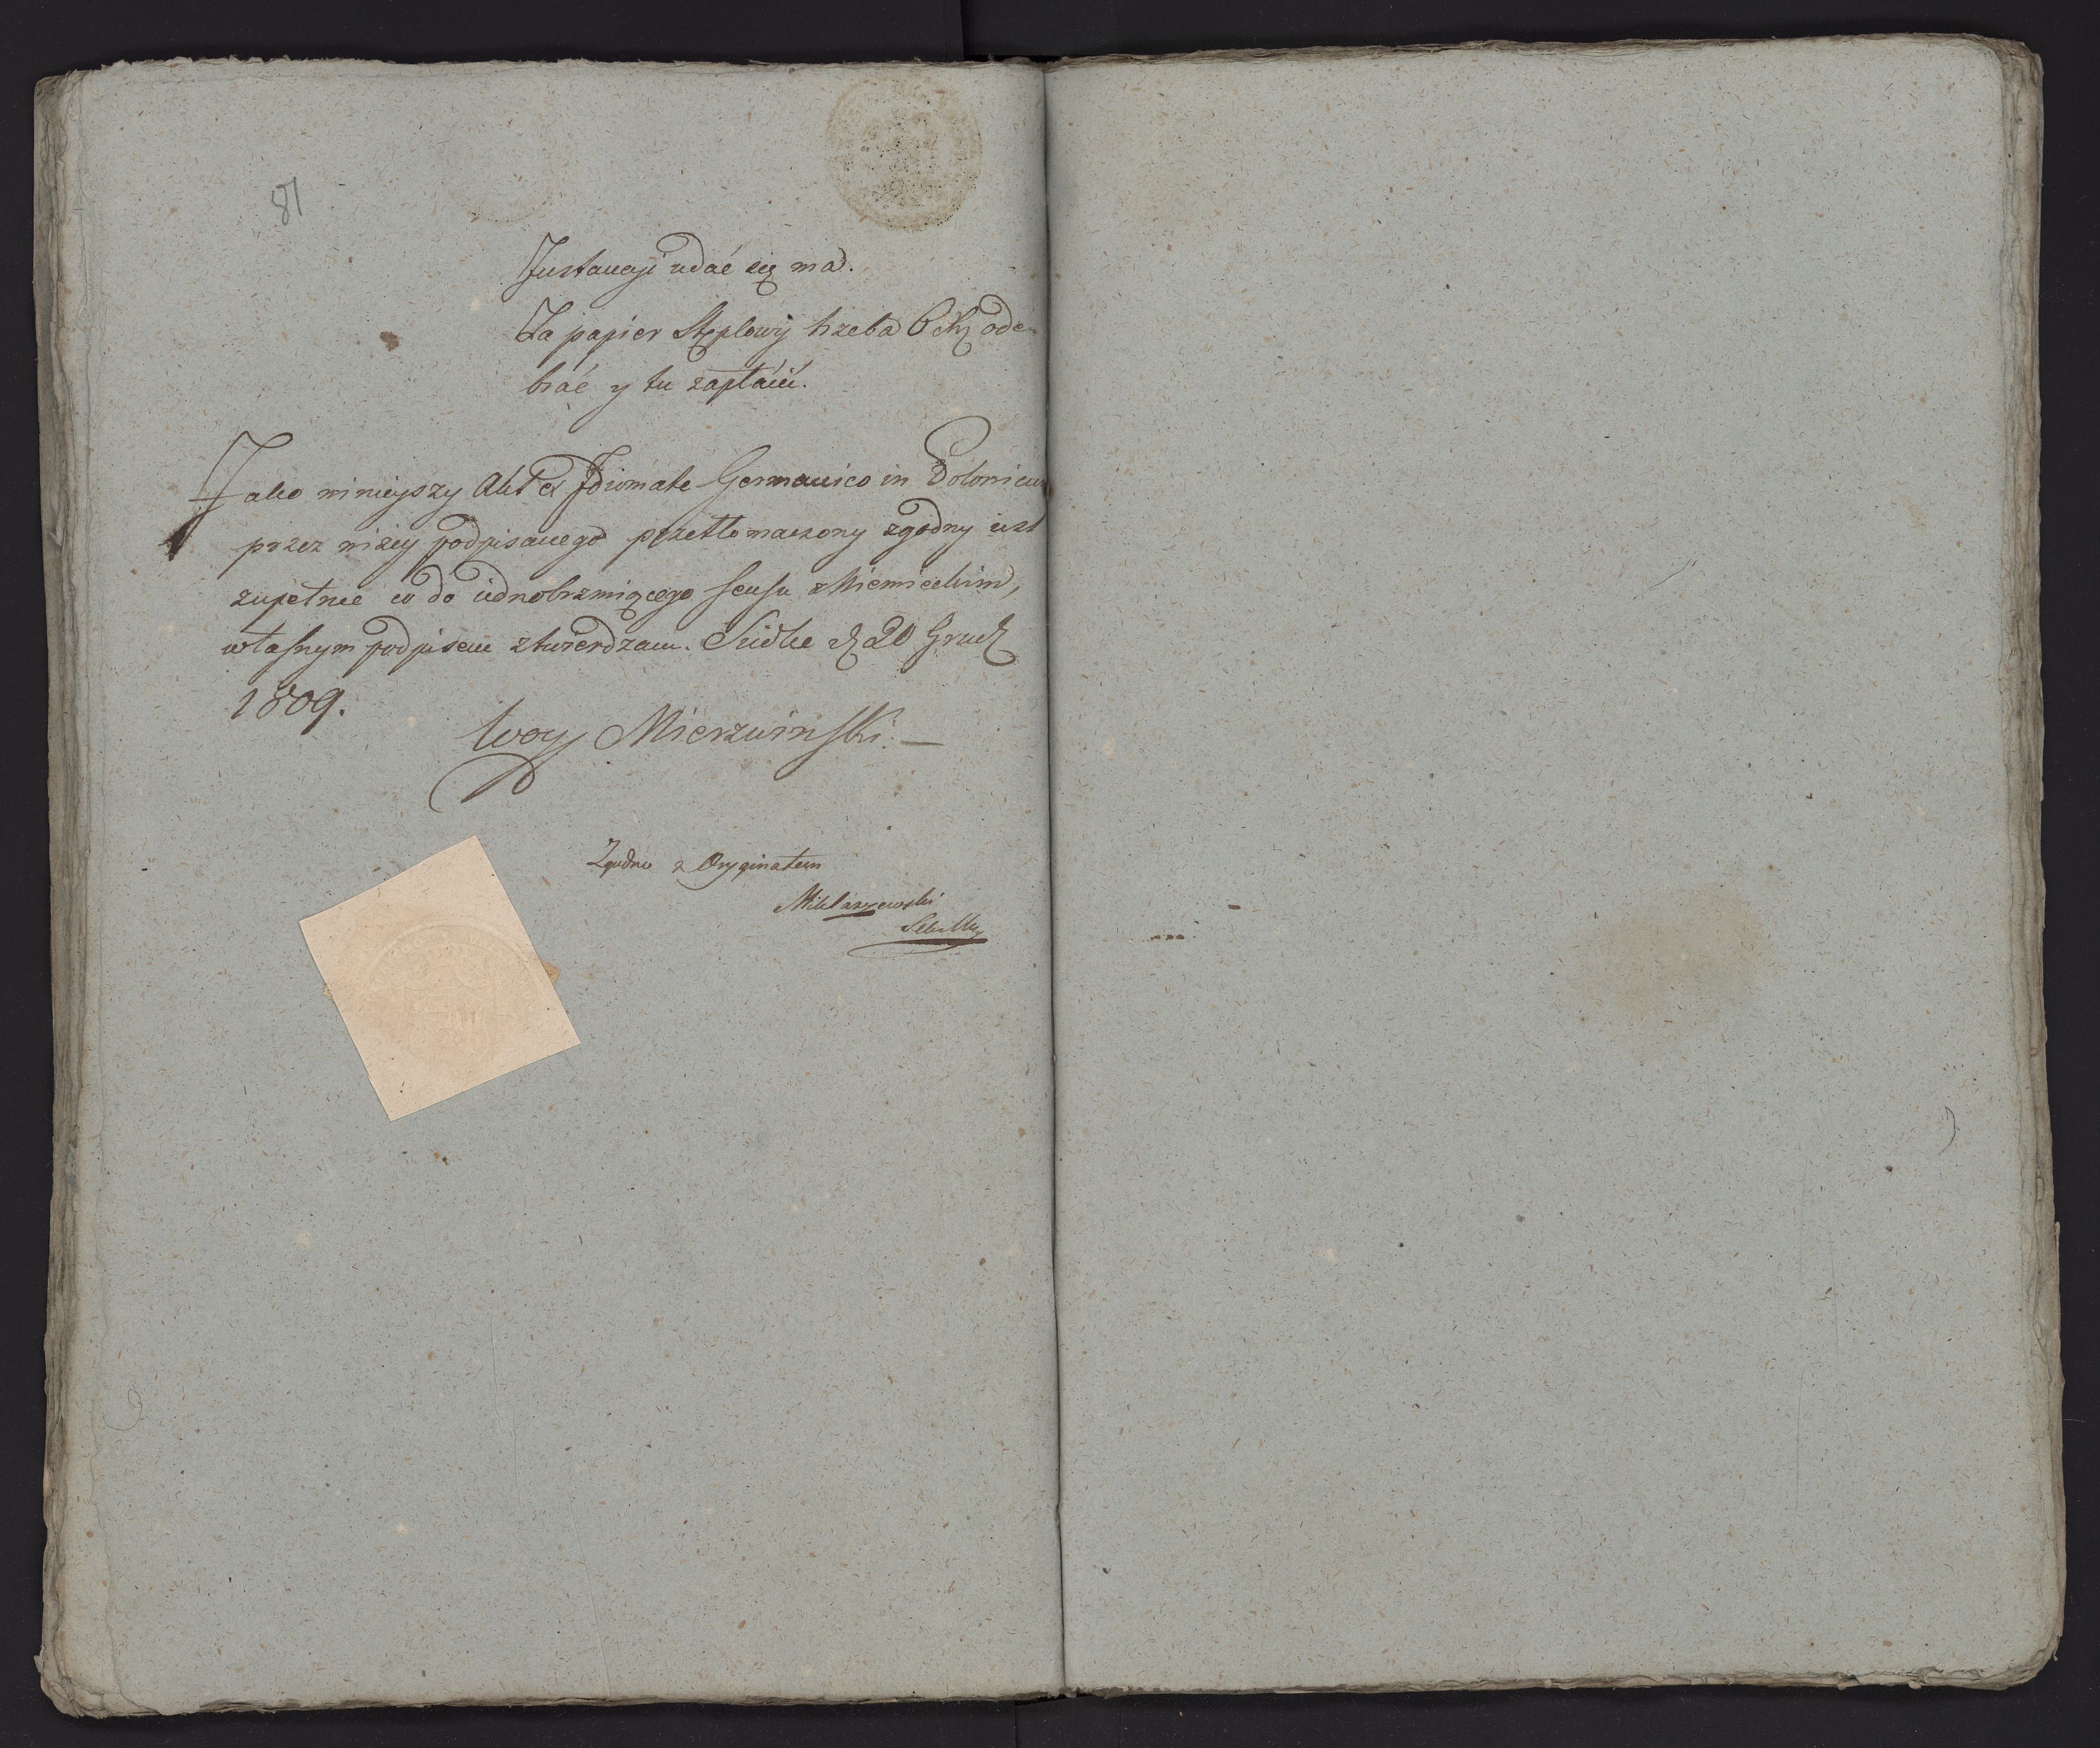 81
Instancyi udać się ma.
Za papier Stęplowy trzeba 6 ode-
brać y tu zapłacić.
Jako ninieyszy Akt ex Idiomate Germanico in Polonicum
przez niżey podpisanego przetłomaczony zgodny iest
zupełnie co do iednobrzmiącego sensu z Niemieckim,
własnym podpisem ztwierdzam. Siedlce d 20 Grud
1809.
Woy Mierzwinski. —
Zgodno z Oryginałem
Miklaszewski